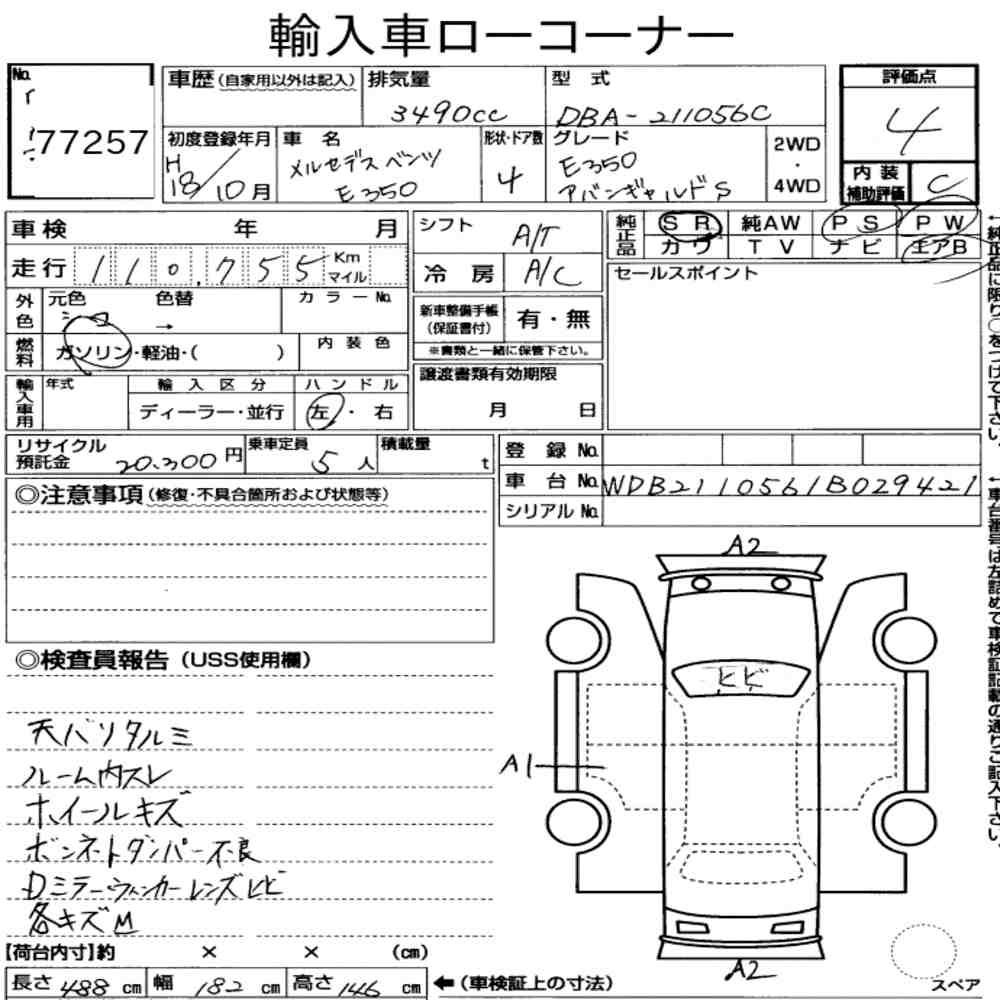 輸入車ローコーナー
No.
77257
車歴(自家用以外は記入)
排気量
3490cc
型式
DBA-211056C
評価点
4
初度登録年月
H18/10月
車名
メルセデスベンツ
E350
形状・ドア数
4
グレード
E350
アバンギャルドS
2WD
・
4WD
内装
補助評価
C
車検 年 月
シフト
A/T
純正品
SR 純AW PS PW
カワ TV ナビ エアB
走行 110,755 Km
マイル
冷房
A/C
セールスポイント
外色
元色 色替
シロ →
カラーNo.
新車整備手帳
(保証書付)
有・無
※書類と一緒に保管下さい。
燃料
ガソリン・軽油・( )
内装色
譲渡書類有効期限
月 日
輸入車用
年式
輸入区分
ディーラー・並行
ハンドル
左・右
リサイクル
預託金
20.300円
乗車定員
5人
積載量
t
登録No.
車台No. WDB2110561B029421
シリアルNo.
←純正品に限り○をつけて下さい。
←車台番号は左詰めで車検証記載の通りご記入下さい。
◎注意事項(修復・不具合箇所および状態等)
◎検査員報告(USS使用欄)
天バリタルミ
ルーム内スレ
ホイールキズ
ボンネットダンパー不良
Dミラーウィンカーレンズヒビ
各キズM
A2
ヒビ
A1
A2
スペア
【荷台内寸】約 × × (cm)
長さ488cm 幅182cm 高さ146cm ←(車検証上の寸法)